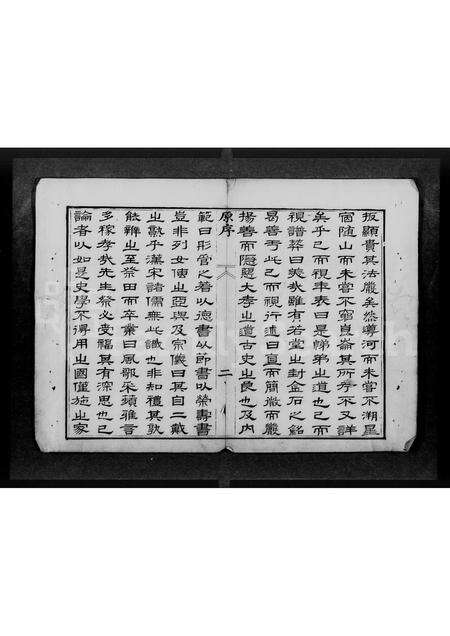 扳顯貴其法嚴矣然導河而未嘗不溯星
宿隨山而未嘗不窮崑崙其所考不又詳
矣乎已而視年表曰是悌弟之道也已而
視譜葬曰爽哉雖有若堂之封金石之銘
曷善于此已而視行述曰直而簡微而嚴
揚善而隱慝大孝之道古史之良也及內
原序
二
範曰彤管之著以德書以節書以榮壽書
豈非列女傳之亞與及宗儀曰其自二戴
之熟乎漢宋諸儒無此識也非知禮其孰
能辨之至祭田而卒業曰風歌采蘋雅言
多稼孝哉先生祭必受福其有深思也已
論者以如是史學不得用之國僅施之家